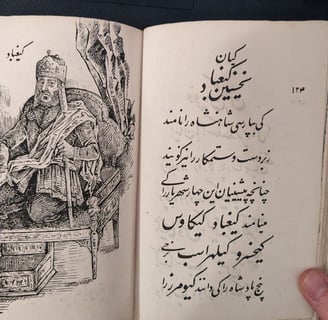 کیان
نخستین کیقباد
۱۲۳
کی بپارسی شاهنشاه را نامند
زبردست و ستمکار را نیز گویند
چنانچه پیشینیان این چهار شهریار را کی
مینامند کیقباد کیکاوس
کیخسرو کیلهراسب برخی
پنج پادشاه را کی دانند کیومرز را
کیقباد